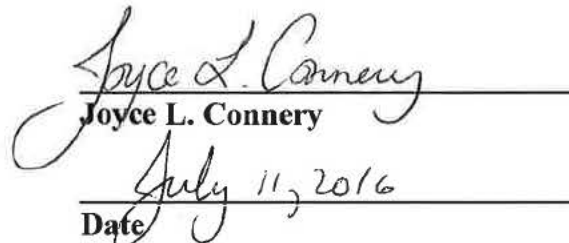 Joyce L. Connery
Joyce L. Connery
July 11, 2016
Date